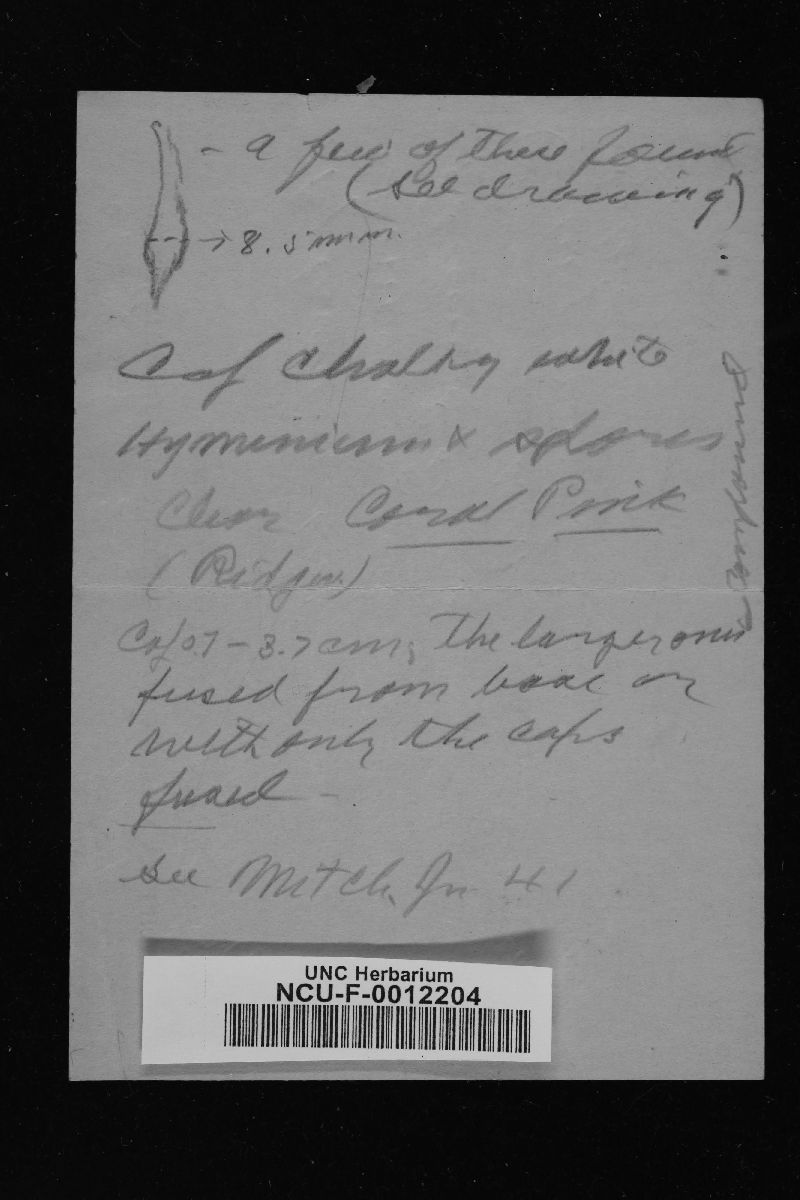 - a few of these found
(See drawing)
→ 8.5 mm.
Cap chalky white
Hymenium & spores
clear Coral Pink
(Ridgw.)
Cap 0.7 - 3.7 cm, the larger ones
compound
fused from base or
with only the caps
fused -
See Mitch. Jn 41
UNC Herbarium
NCU-F-0012204